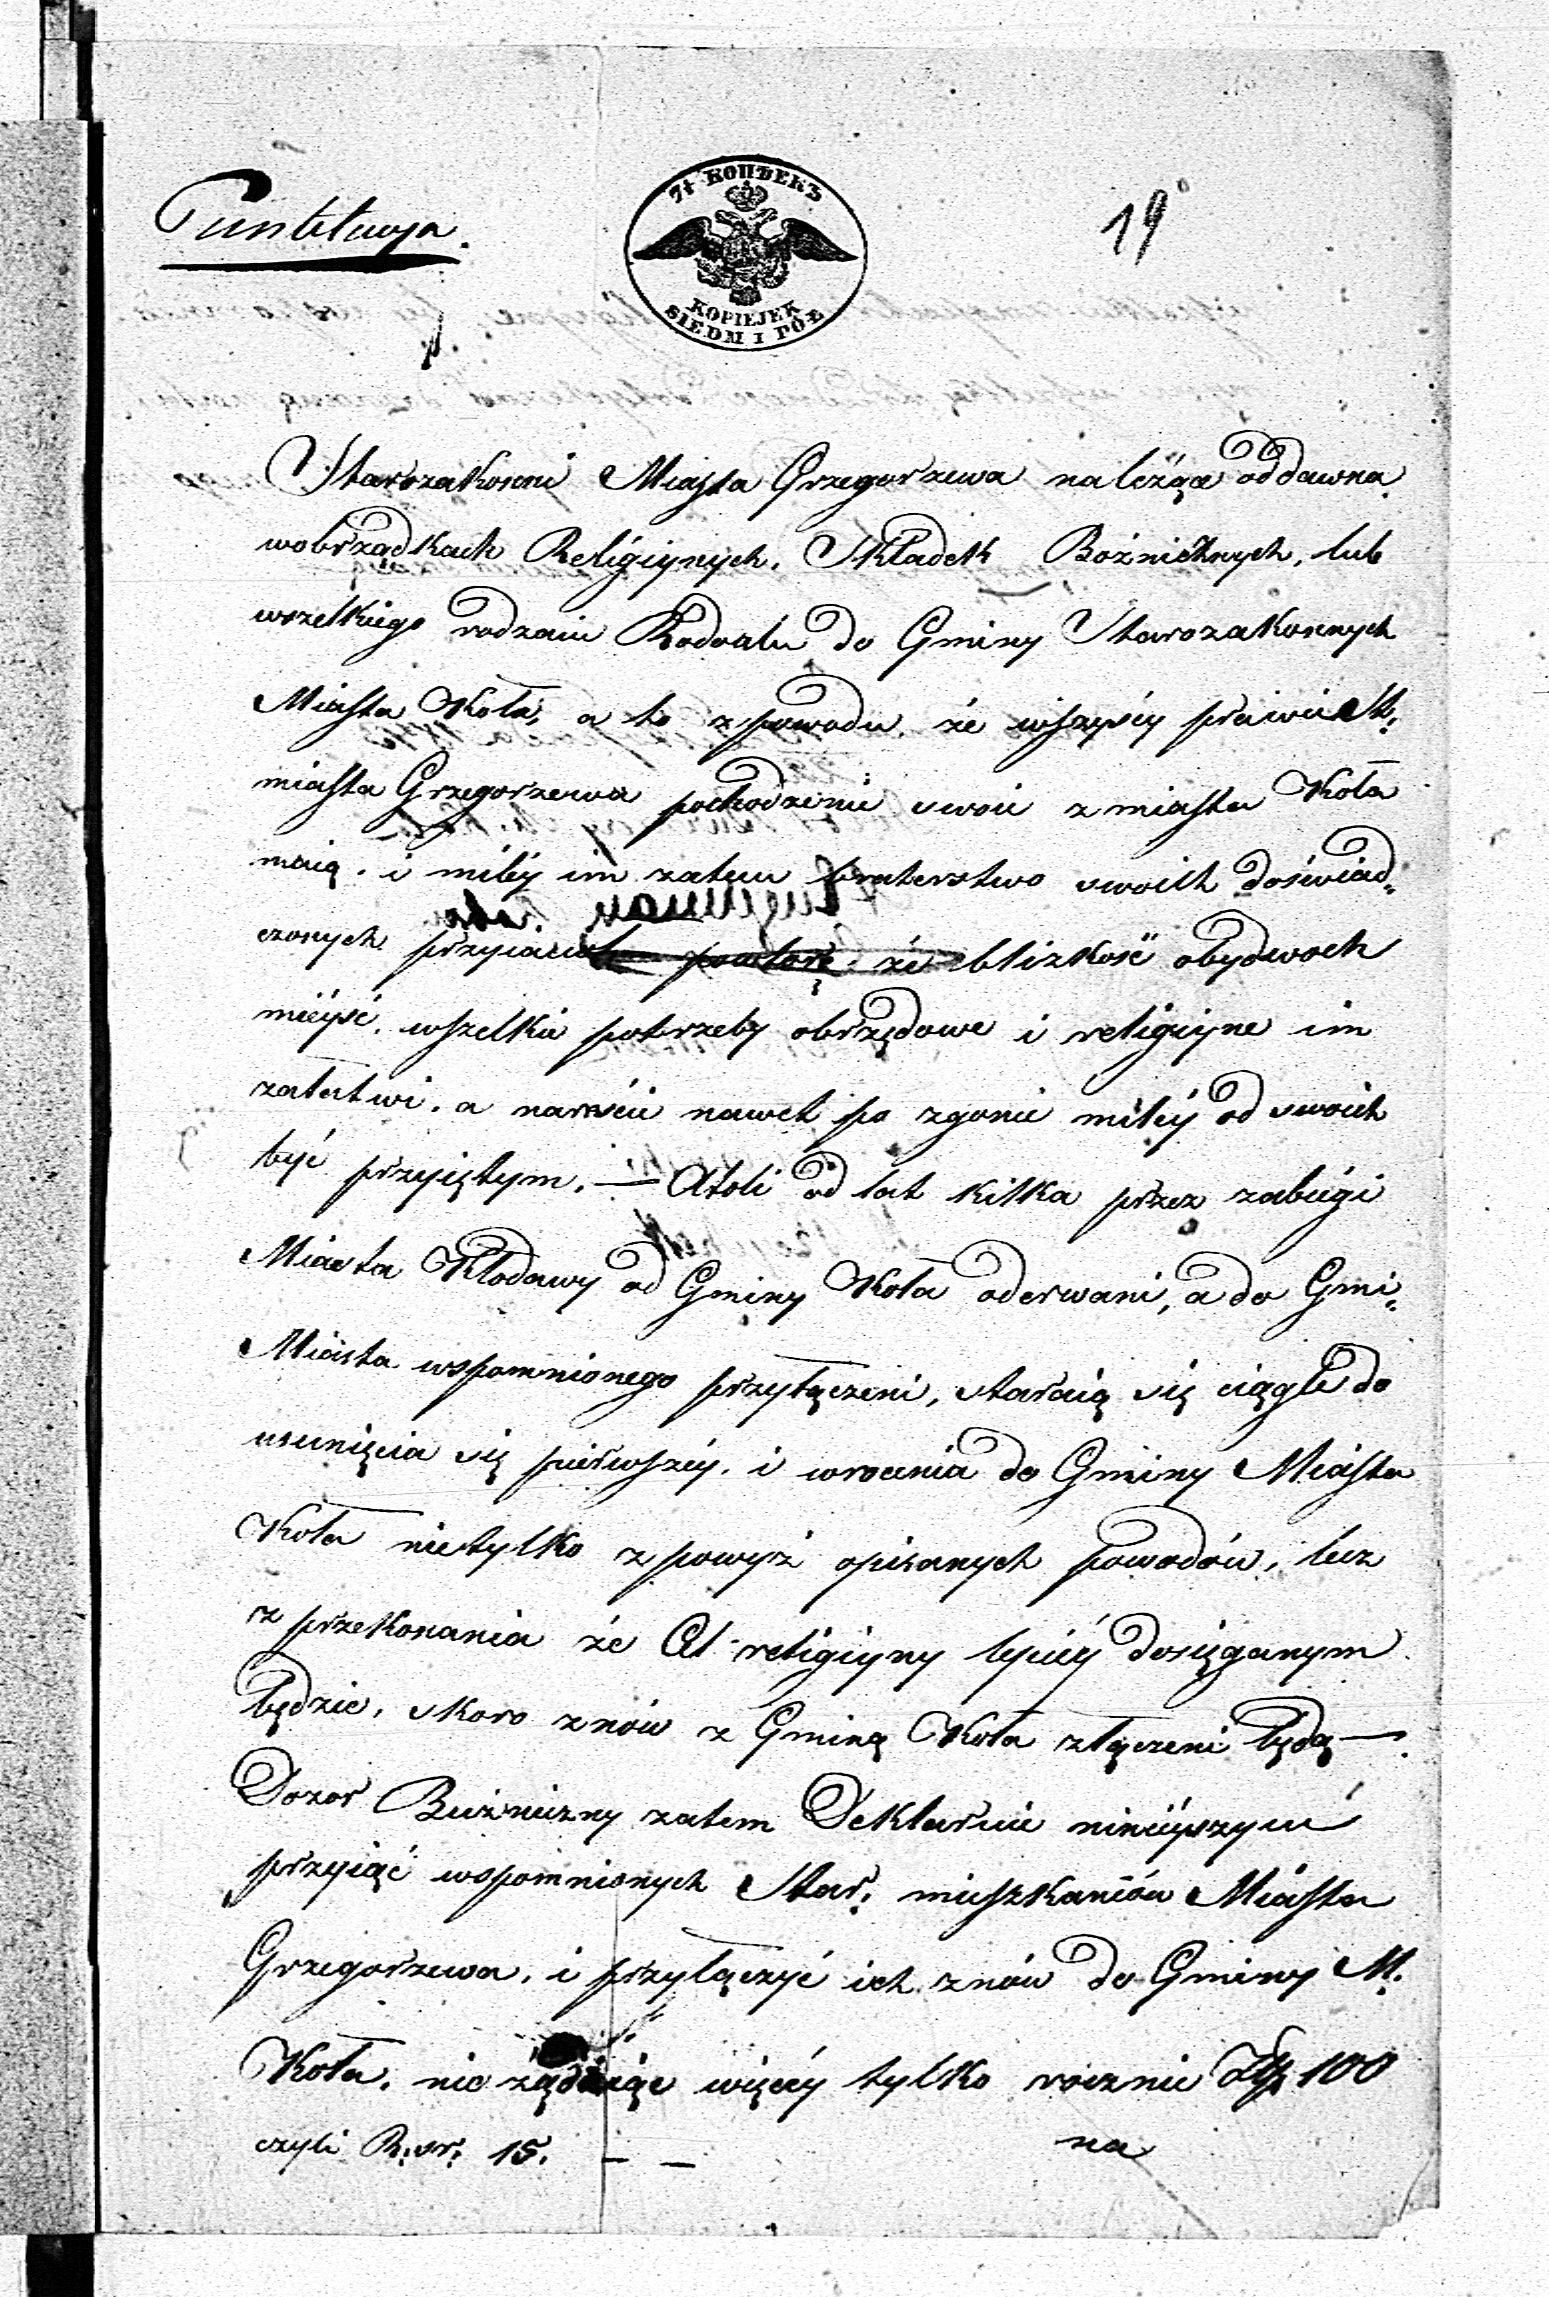 Punktacya.
7½ КОПѢЕКЪ
KOPIEJEK
SIEDM I PÓŁ
19
Starozakonni Miasta Grzegorzewa należąc oddawna
wobrządkach Religiynych, Składek Bóźnicznych, lub
wszelkiego rodzaiu do Gminy Starozakonnych
Miasta Koła, a to z powodu, że wszyscy prawie St.
miasta Grzegorzewa pochodzenie swoie z miasta Koła
maią, i miléy im zatem braterstwo swoich doświad„
czonych przyiaciół że blizkość obydwoch
mieysć, wszelkie potrzeby obrzędowe i religiyne im
załatwi, a nareście nawet po zgonie miléy od swoich
być przyiętym. — Atoli od lat kilka przez zabiegi
Miasta Kłodawy od Gminy Koła oderwani, a do Gmi„
Miasta wspomnionego przyłączeni, staraią się ciągle do
usunięcia się pierwszéy, i wrocenia do Gminy Miasta
Koła nietylko z powyż opisanych powodów, lecz
z przekonania że Cel religiyny lepiéy dosięganym
będzie, skoro znów z Gminą Koła złączeni będą —
Dozor Buźniczny zatem Deklaruie ninieyszym
przyiąć wspomnionych Star. mieszkańców Miasta
Grzegorzewa, i przyłączyć ich znów do Gminy M.
Koła, nie żądaiąc więcéy tylko rocznie Złp 100
czyli R. sr. 15. — —
na